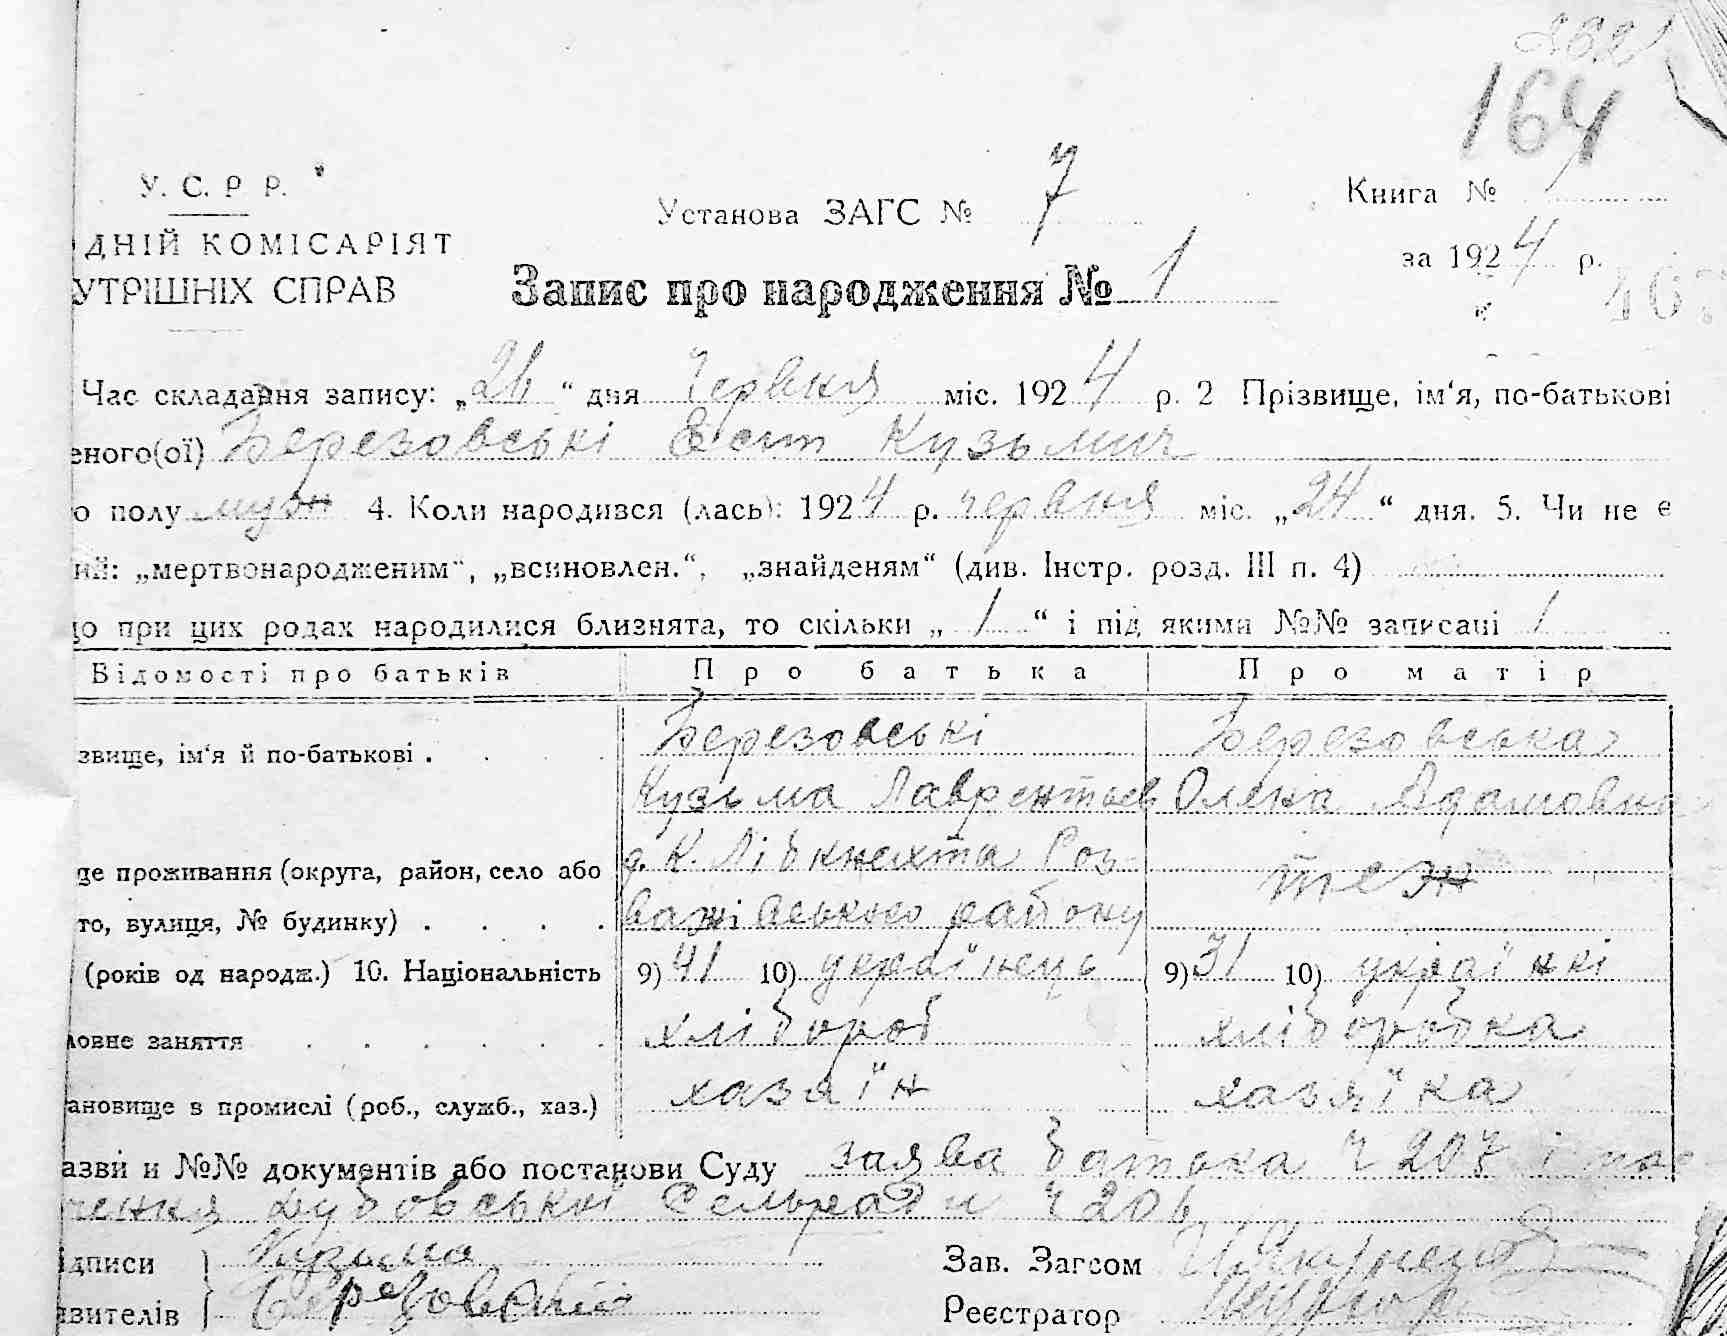 164
У. С. Р Р.
Установа ЗАГС № 7
Книга №
ДНІЙ КОМІСАРІЯТ
за 1924 р.
УТРІШНІХ СПРАВ
Запис про народження № 1
Час складання запису: „26“ дня Червня міс. 1924 р. 2 Прізвище, ім‘я, по-батькові
еного(ої) Березовські Кузьмич
о полу муж 4. Коли народився (лась): 1924 р. червня міс. „24“ дня. 5. Чи не є
ий: „мертвонародженим“, „всиновлен.“, „знайденям“ (див. Інстр. розд. III п. 4)
що при цих родах народилися близнята, то скільки „1“ і під якими №№ записані 1
Відомості про батьків Про батька Про матір
звище, ім‘я й по-батькові . Березовські Березовська
Кузьма Лаврентьев Олена Адамовна
де проживання (округа, район, село або с. К. Лібкнехта Роз-
то, вулиця, № будинку) . . . . важівського району теж
(років од народж.) 10. Національність 9) 41 10) українець 9) 31 10) українкі
ловне заняття . . . . . . хлібороб хліборобка
ановище в промислі (роб., служб., хаз.) хазяїн хазяїка
азви и №№ документів або постанови Суду заява батька Ч 207 і
Дубовської Сельради Ч 206
ідписи Кузьма Зав. Загсом
явителів Березовский Реєстратор